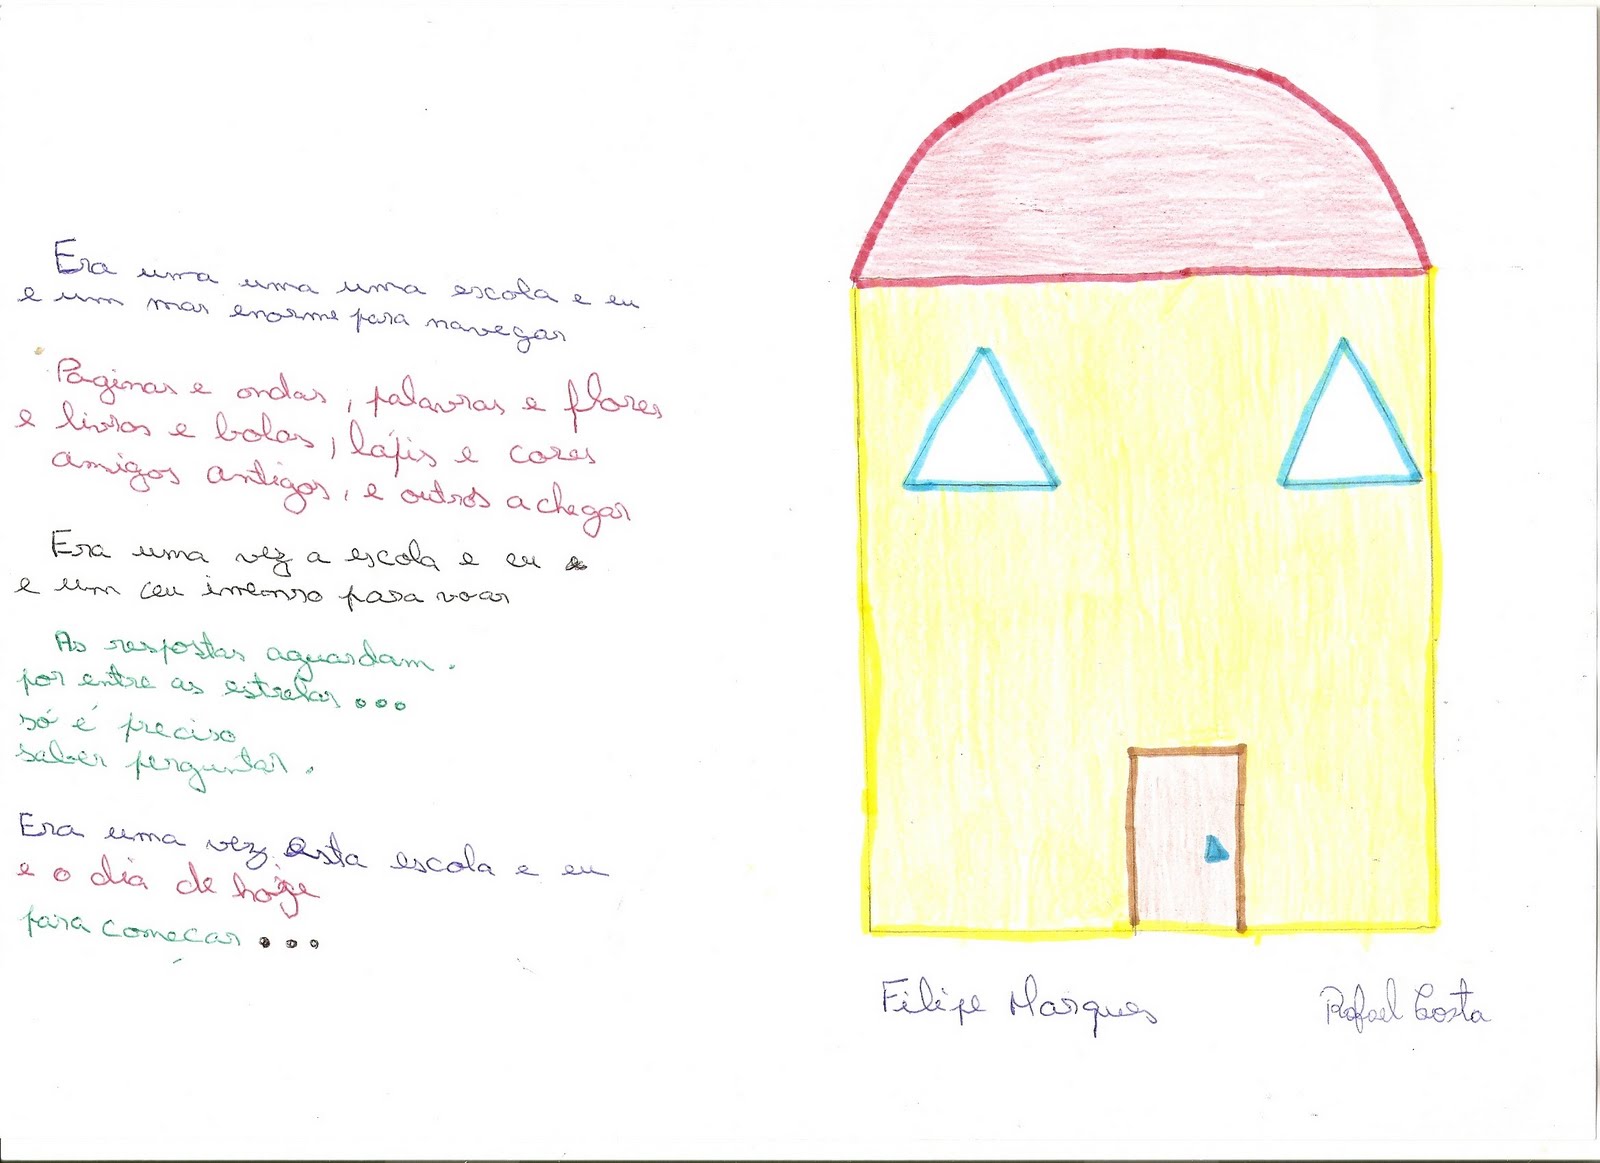 Era uma uma uma escola e eu
e um mar enorme para navegar
Paginas e ondas, palavras e flores
e livros e bolas, lápis e cores
amigos antigos, e outros a chegar
Era uma vez a escola e eu e
e um ceu imenso para voar
As respostas aguardam.
por entre as estrelas...
só é preciso
saber perguntar.
Era uma vez esta escola e eu
e o dia de hoje
para começar...
Filipe Marques
Rafael Costa